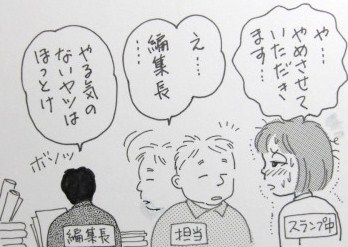 や…
やめさせて
いただき
ます…
え……
編集長
……
やる気の
ないヤツは
ほっとけ
ボソッ
編集長
担当
スランプ中